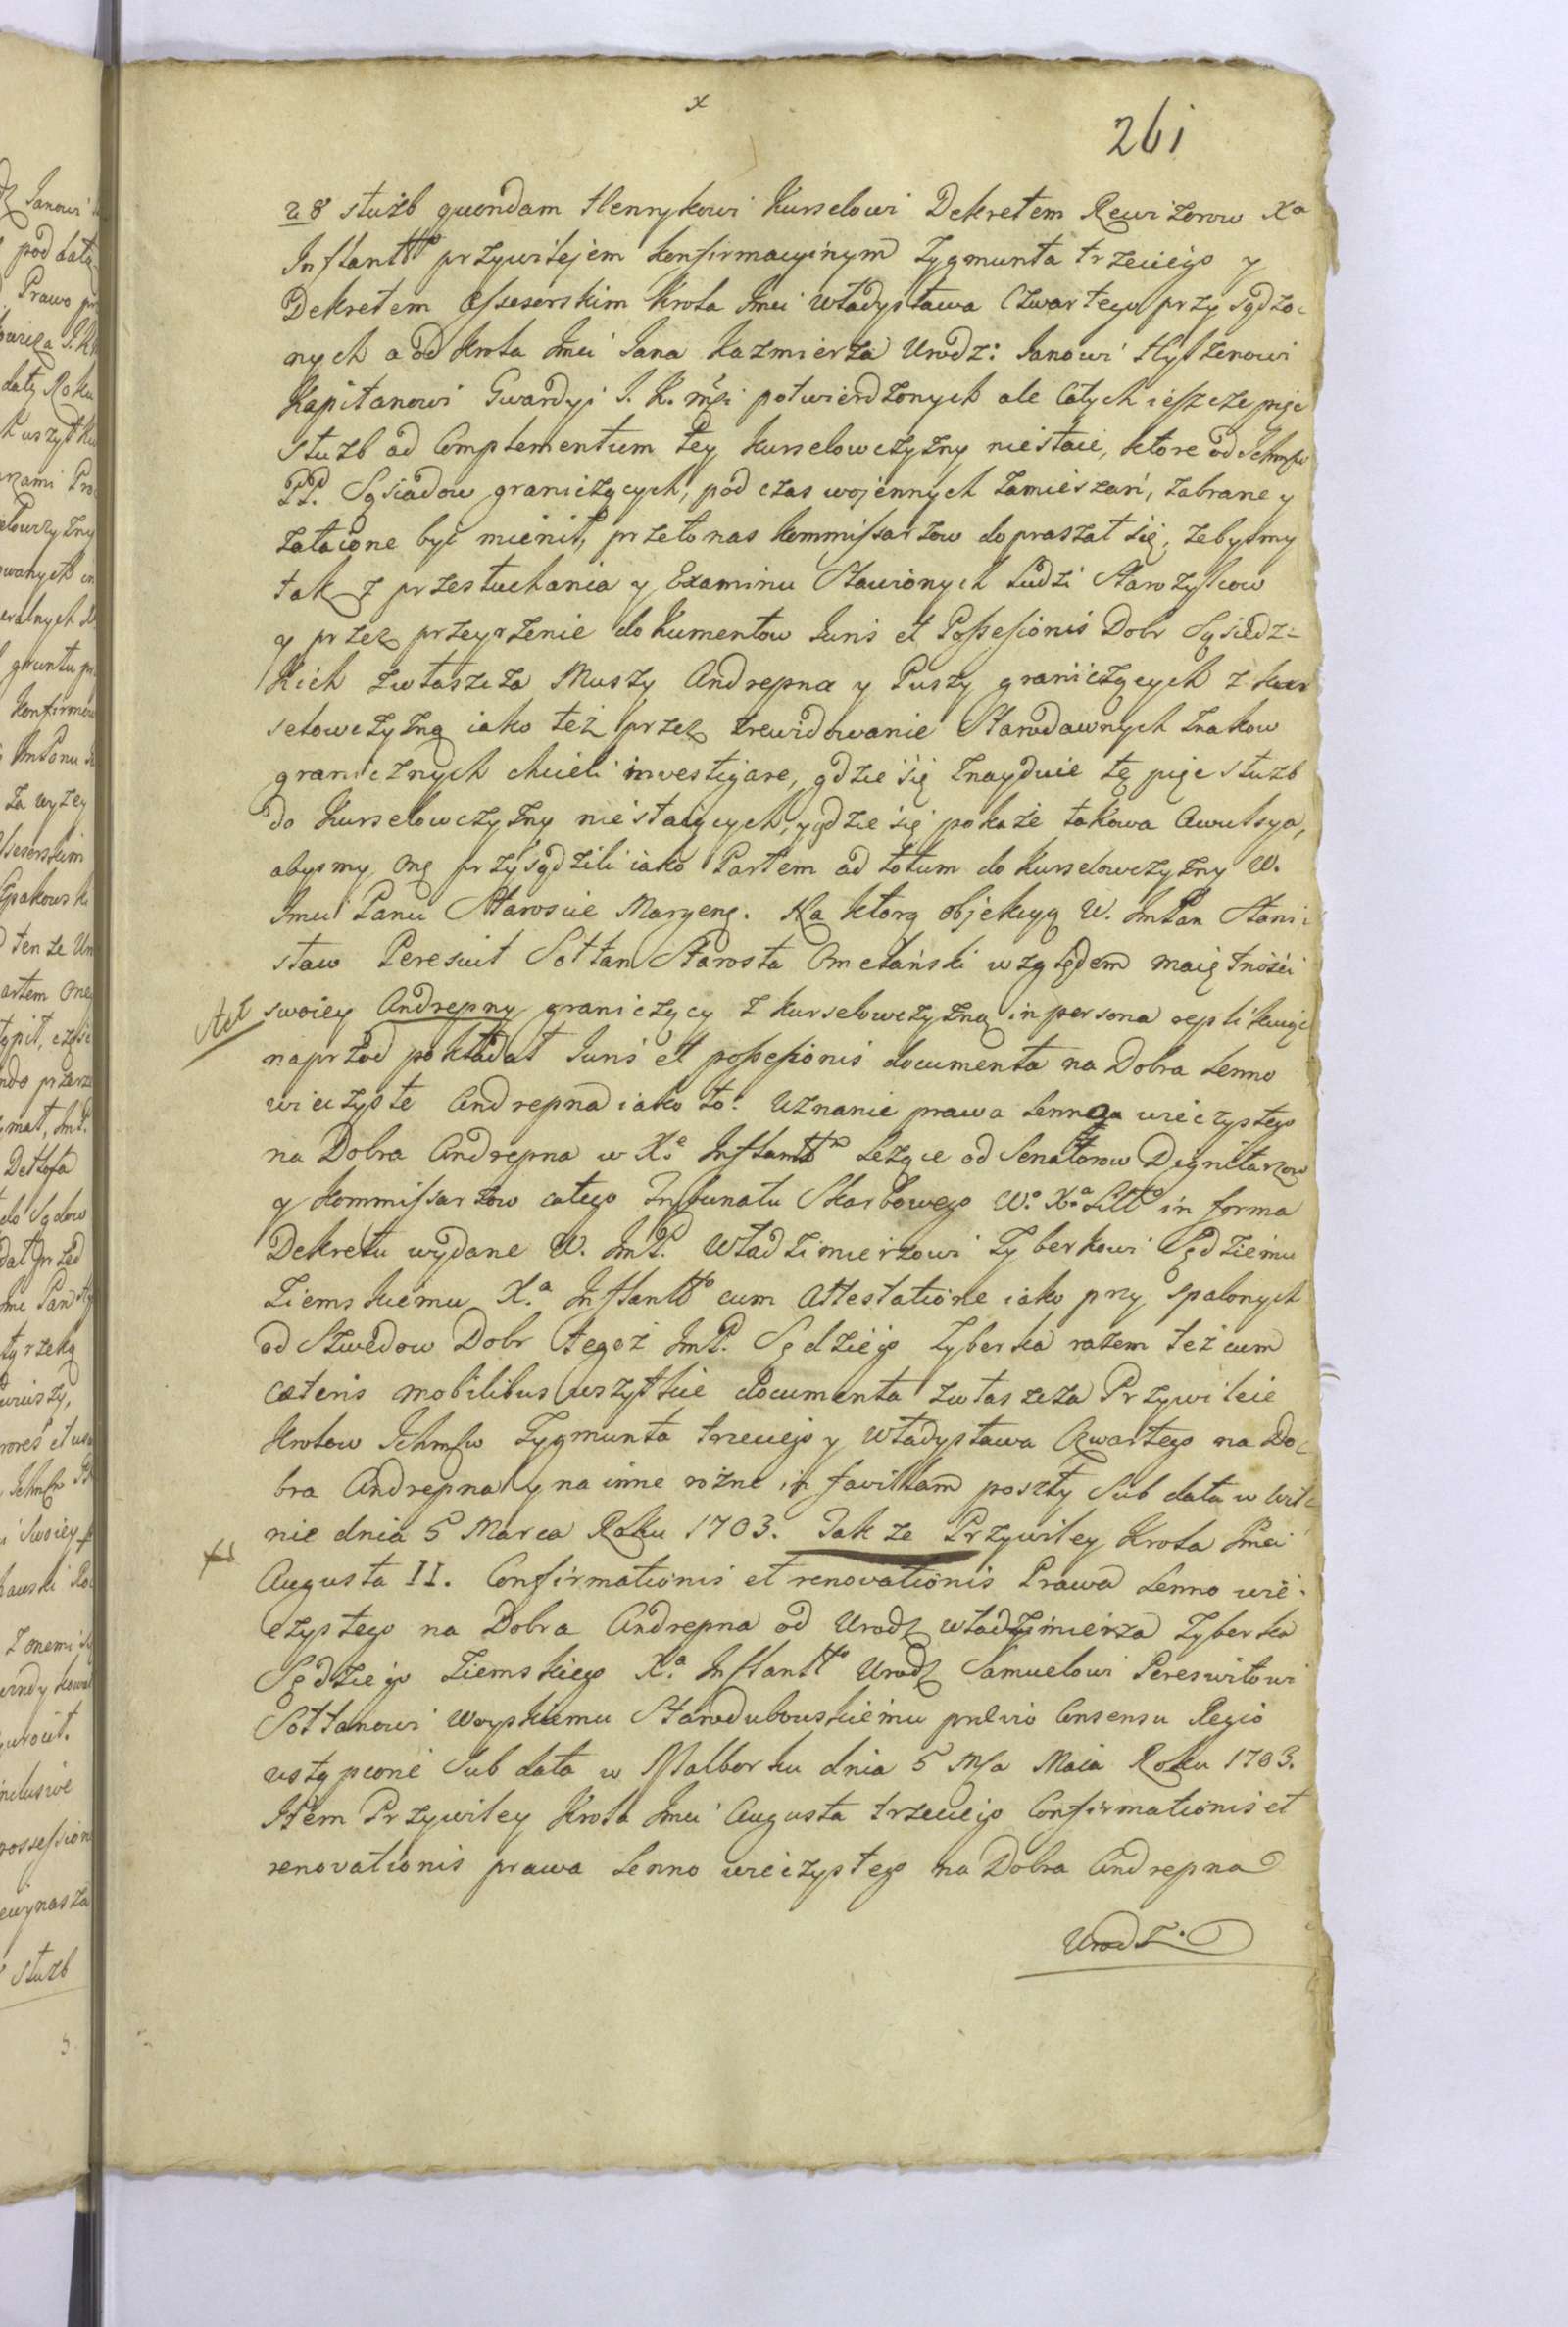 x
261
28 służb quondam Henrykowi Kurselowi Dekretem Rewizorow Xa
Inflantto przywilejem konfirmacyinym Zygmunta trzeciego y
Dekretem Assesorskim Krola Jmci Władysława Czwartego przysądzo=
nych a od Krola Jmci Jana Kazmierza Urodz: Janowi Hylzenowi
Kapitanowi Gwardyi J. K. mści potwierdzonych ale całych ieszcze pięc
służb ad Complementum tey Kurselowczyzny niestaie, ktore od Ichmśw
PP. Sąsiadow graniczących, pod czas wojennych zamieszań, zabrane y
zataione być mienił, przeto nas kommissarzow dopraszał się, zebysmy
tak z przesłuchania y Examinu Stawionych Ludzi Starozylcow
y przez przeyrzenie dokumentow Juris et Possessionis Dobr Sąsiedz=
kich zwłaszcza Muszy Andrepna y Puszy graniczących z kur
selowczyzną iako też przez zrewidowanie Starodawnych znakow
granicznych chcieli investigare, gdzie się znayduie tę pięc służb
do Kurselowczyzny niestaiących, y gdzie się pokaże takowa Awulsya,
abysmy onę przysądzili iako Partem ad totum do kurselowczyzny W.
Jmci Panu Staroscie Maryeng. Na ktorą objekcyą W. JmPan Stani=
sław Pereswit Sołtan Starosta Omelański względem maiętności
Act swoiey Andrepny graniczący z kurselowczyzną in persona replikuiąc
naprzod pokładał Juris et possessionis documenta na Dobra Lenno
wieczyste Andrepna iako to: Uznanie prawa Lennego wieczystego
na Dobra Andrepna w Xa Inflantto Leżące od Senatorow Dygnitarzow
y Kommissarzow całego Trybunału Skarbowego W.o X.a Litto in forma
Dekretu wydane W. JmP. Władzimierzowi Zyberkowi Sędziemu
Ziemskiemu X.a Inflantto cum Attestatione iako przy spalonych
od Szwedow Dobr tegoż JmP. Sędziego Zyberka razem też cum
cæteris mobilibus wszytkie documenta zwłaszcza Przywileie
Krolow Ichmśw Zygmunta trzeciego y Władysława Czwartego na Do=
bra Andrepna y na inne rożne in favillam poszły Sub data w Wil=
nie dnia 5 Marca Roku 1703. Tak ze Przywiley Krola Jmci
Augusta II. Confirmationis et renovationis Prawa Lenno wie=
czystego na Dobra Andrepna od Urodz Władzimierza Zyberka
Sędziego Ziemskiego X.a Inflantto Urodz Samuelowi Pereswitowi
Sołtanowi Woyskiemu Starodubowskiemu prævio Consensu Regio
ustąpcone Sub data w Malborku dnia 5 Mśa Maia Roku 1703.
Item Przywiley Krola Jmci Augusta trzeciego Confirmationis et
renovationis prawa Lenno wieczystego na Dobra Andrepna
Urodz.